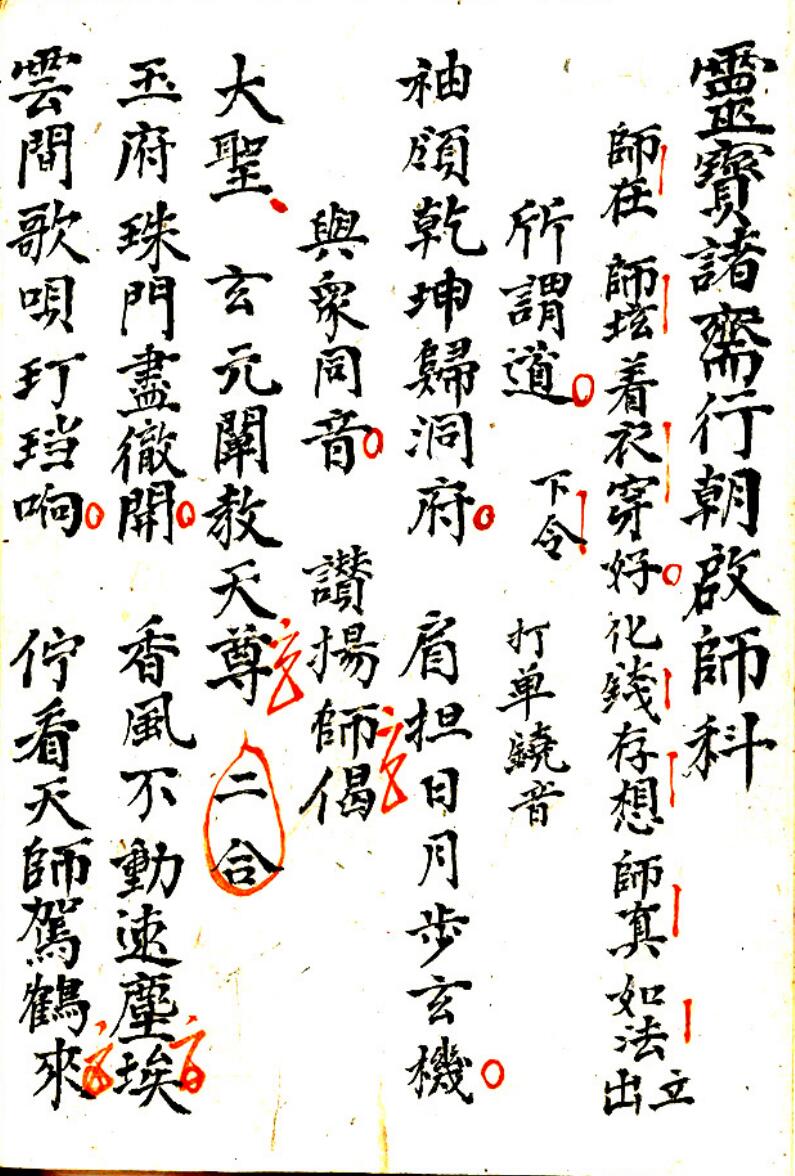 靈寳諸齋行朝啟師科
師在 師坛着衣穿好化錢存想 師真 如法立出
所謂道 下令 打单鐃音
袖頒乾坤歸洞府 肩担日月步玄機
與衆同音 讃揚師偈
大聖 玄元闡教天尊 二合
玉府珠門盡徹開 香風不動速塵埃
雲間歌唄玎珰响 佇看天師駕鶴來